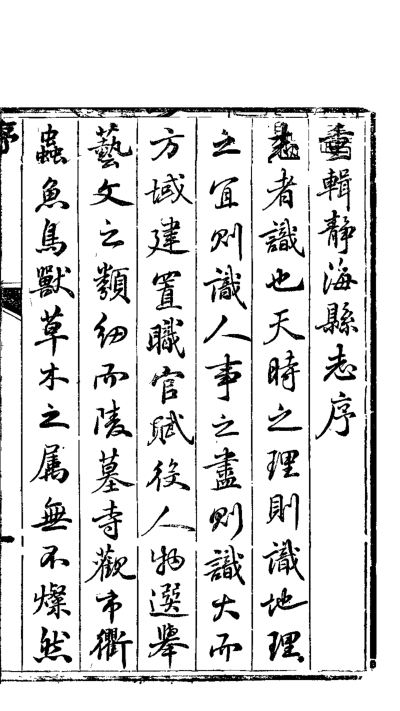 重輯靜海縣志序
者識也天時之理則識地理
之宜則識人事之盡則識大而
方域建置職官賦役人物選舉
藝文之類細而陵墓寺觀市衢
蟲魚鳥獸草木之属無不燦然